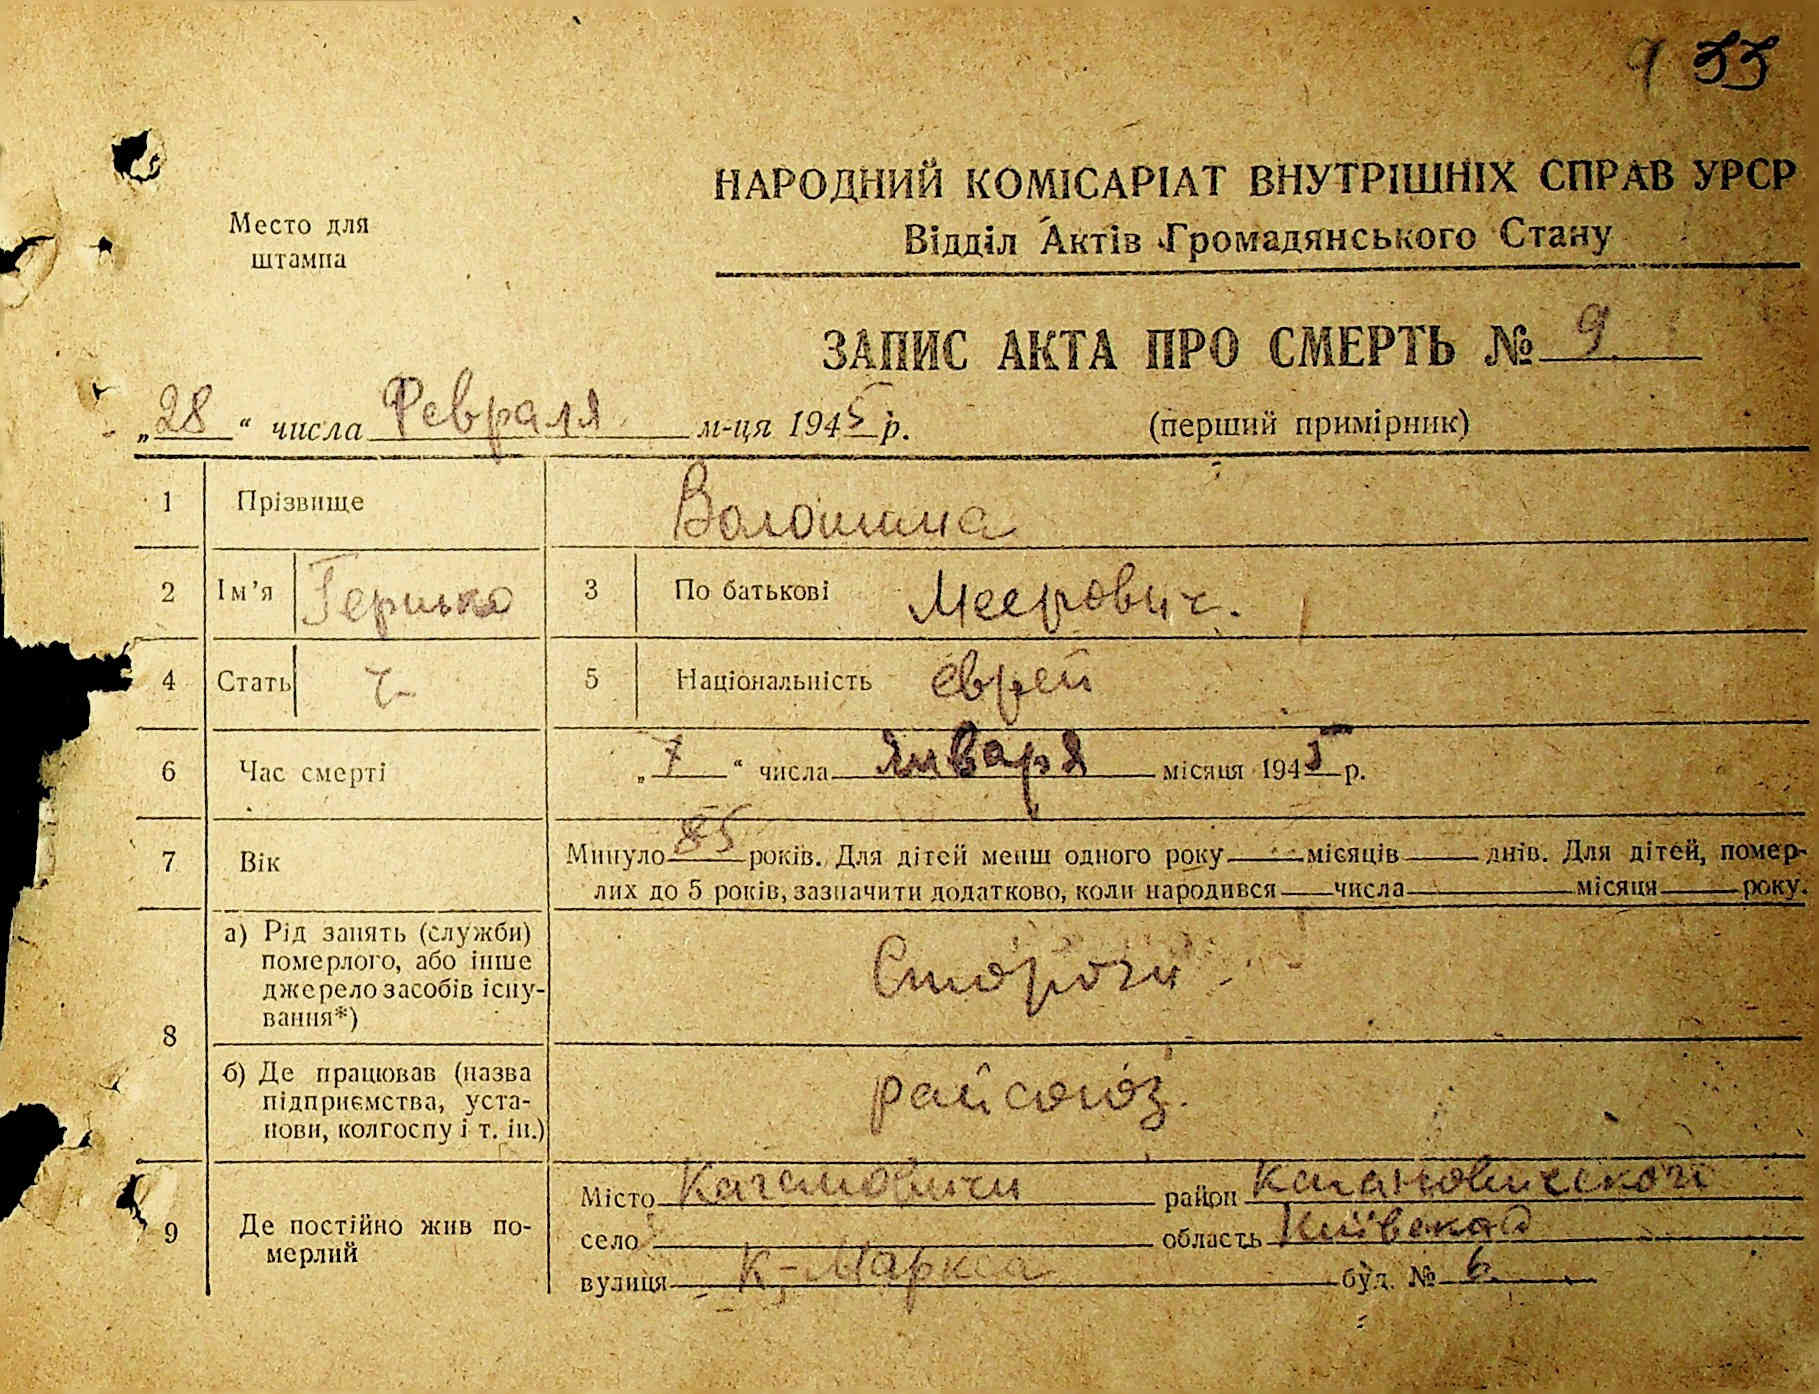 9 33
НАРОДНИЙ КОМІСАРІАТ ВНУТРІШНІХ СПРАВ УРСР
Место для
штампа
Відділ Актів Громадянського Стану
ЗАПИС АКТА ПРО СМЕРТЬ № 9
„28“ числа Февраля м-ця 1945 р. (перший примірник)
1 Прізвище Волошина
2 Ім'я Гершко 3 По батькові Меерович.
4 Стать ч- 5 Національність еврей
6 Час смерті „7“ числа Января місяця 1945 р.
7 Вік Минуло 85 років. Для дітей менш одного року місяців днів. Для дітей, помер-
лих до 5 років, зазначити додатково, коли народився числа місяця року.
8 а) Рід занять (служби)
померлого, або інше
джерело засобів існу-
вання*)
Сторож
б) Де працював (назва
підприємства, уста-
нови, колгоспу і т. ін.)
райсоюз.
9 Де постійно жив по-
мерлий
Місто Кагановичи район Кагановического
село область Київская
вулиця К-Маркса буд. № 6